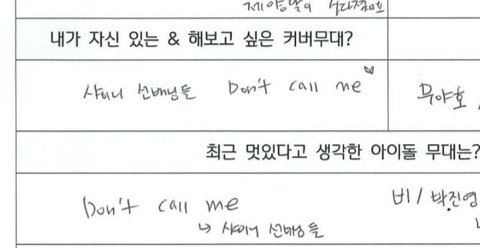 내가 자신 있는 & 해보고 싶은 커버무대?
샤이니 선배님들 Don't call me♡
무야호,
최근 멋있다고 생각한 아이돌 무대는?
Don't call me
비 / 박진영
↳ 샤이니 선배님들